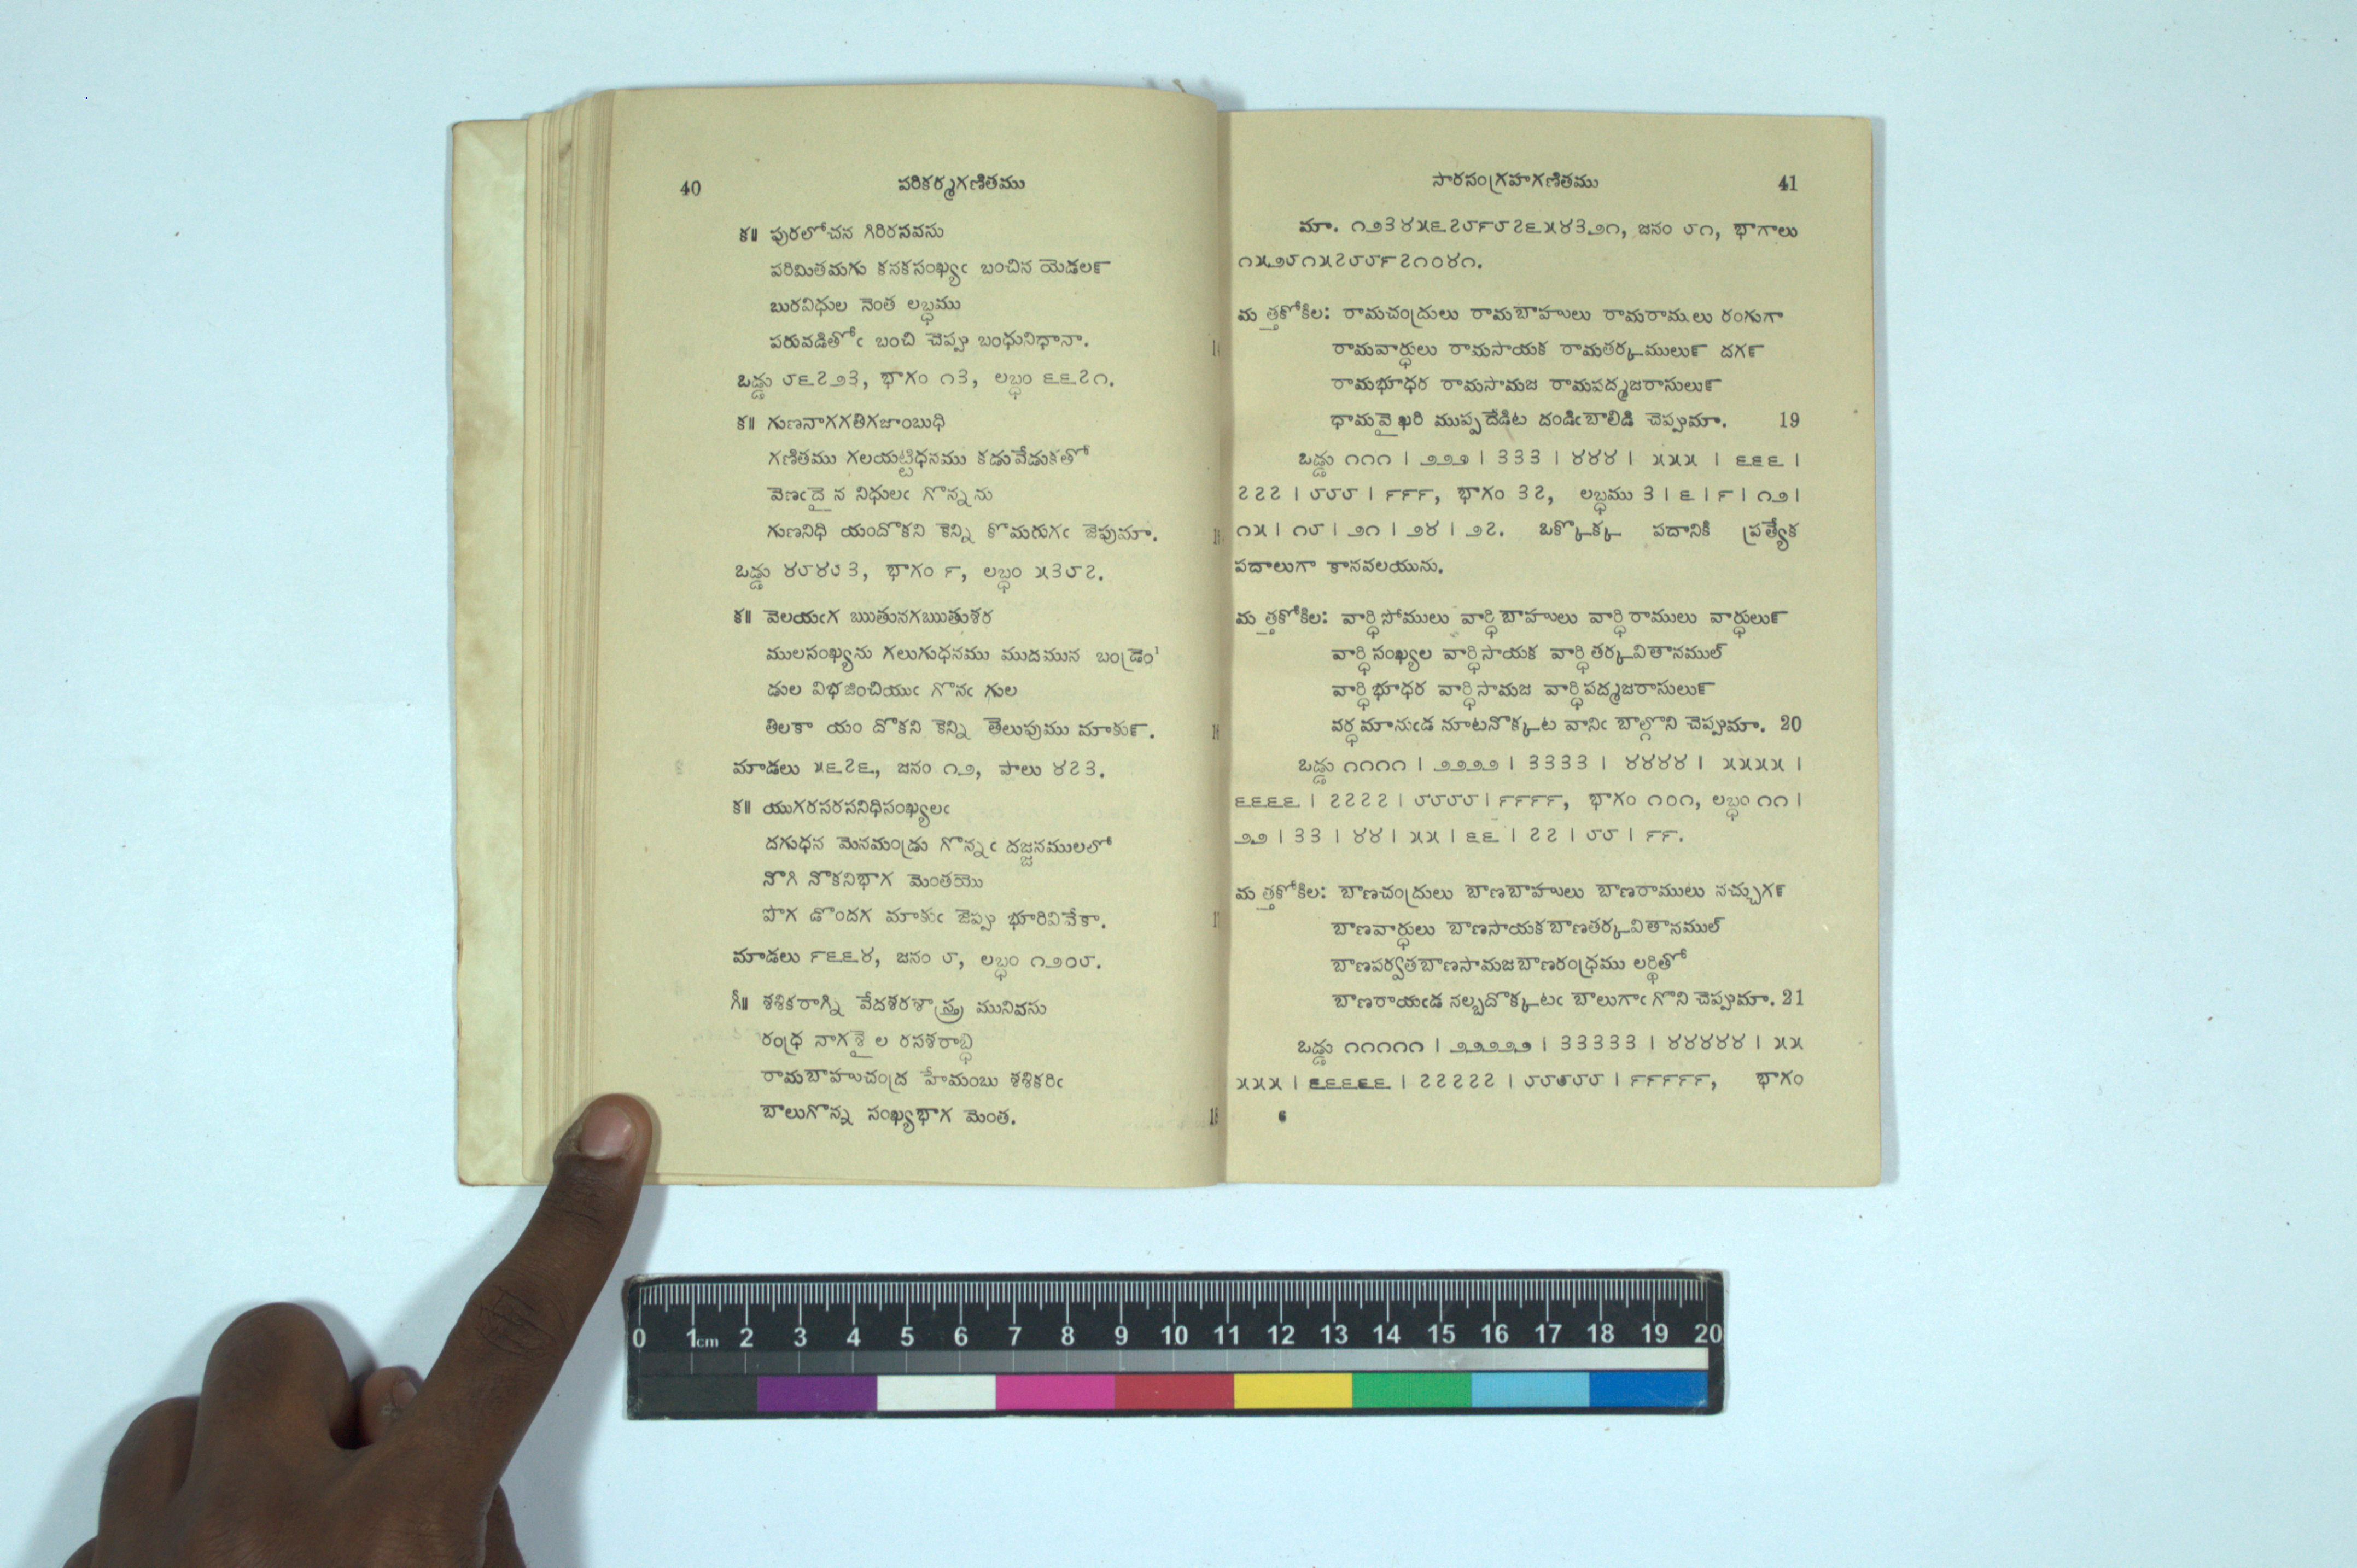 40 పరికర్మగణితము
క॥ పురలోచన గిరిరసవసు
పరిమితమగు కనకసంఖ్యఁ బంచిన యెడలన్
బురవిధుల నెంత లబ్ధము
పరువడితోఁ బంచి చెప్పు బంధునిధానా.
ఒడ్డు ౮౬౭౨౩, భాగం ౧౩, లబ్ధం ౬౬౭౧.
క॥ గుణనాగగతిగజాంబుధి
గణితము గలయట్టిధనము కడువేడుకతో
వెణఁదై న నిధులఁ గొన్నను
గుణనిధి యందొకని కెన్ని కొమరుగఁ జెపుమా.
ఒడ్డు ౪౮౪౮౩, భాగం ౯, లబ్ధం ౫౩౮౭.
క॥ వెలయఁగ ఋతునగఋతుశర
ములసంఖ్యను గలుగుధనము ముదమున బండ్రెం
డుల విభజించియుఁ గొనఁ గుల
తిలకా యం దొకని కెన్ని తెలుపుము మాకున్.
మాడలు ౫౬౭౬, జనం ౧౨, పాలు ౪౭౩.
క॥ యుగరసరసనిధిసంఖ్యలఁ
దగుధన మెనమండ్రు గొన్నఁ దజ్జనములలో
నొగి నొకనిభాగ మెంతయొ
పొగ డొందగ మాకుఁ జెప్పు భూరివివేకా.
మాడలు ౯౬౬౪, జనం ౮, లబ్ధం ౧౨౦౮.
గీ॥ శశికరాగ్ని వేదశరశాస్త్ర మునివసు
రంధ్ర నాగశై ల రసశరాబ్ధి
రామబాహుచంద్ర హేమంబు శశికరిఁ
బాలుగొన్న సంఖ్యభాగ మెంత.
సారసంగ్రహగణితము 41
మా. ౧౨౩౪౫౬౭౮౯౮౭౬౫౪౩౨౧, జనం ౮౧, భాగాలు
౧౫౨౮౧౫౭౮౮౯౭౧౦౪౧.
మత్తకోకిల: రామచంద్రులు రామబాహులు రామరాములు రంగుగా
రామవార్ధులు రామసాయక రామతర్కములున్ దగన్
రామభూధర రామసామజ రామపద్మజరాసులున్
ధామవైఖరి ముప్పదేడిట దండిఁబాలిడి చెప్పుమా. 19
ఒడ్డు ౧౧౧ | ౨౨౨ | ౩౩౩ | ౪౪౪ | ౫౫౫ | ౬౬౬ |
౭౭౭ | ౮౮౮ | ౯౯౯, భాగం ౩౭, లబ్ధము ౩ | ౬ | ౯ | ౧౨ |
౧౫ | ౧౮ | ౨౧ | ౨౪ | ౨౭. ఒక్కొక్క పదానికి ప్రత్యేక
పదాలుగా కానవలయును.
మత్తకోకిల: వార్ధిసోములు వార్ధిబాహులు వార్ధిరాములు వార్ధులున్
వార్ధిసంఖ్యల వార్ధిసాయక వార్ధితర్కవితానముల్
వార్ధిభూధర వార్ధిసామజ వార్ధిపద్మజరాసులున్
వర్ధమానుఁడ నూటనొక్కట వానిఁ బాల్గొని చెప్పుమా. 20
ఒడ్డు ౧౧౧౧ | ౨౨౨౨ | ౩౩౩౩ | ౪౪౪౪ | ౫౫౫౫ |
౬౬౬౬ | ౭౭౭౭ | ౮౮౮౮ | ౯౯౯౯, భాగం ౧౦౧, లబ్ధం ౧౧ |
౨౨ | ౩౩ | ౪౪ | ౫౫ | ౬౬ | ౭౭ | ౮౮ | ౯౯.
మత్తకోకిల: బాణచంద్రులు బాణబాహులు బాణరాములు నచ్చుగన్
బాణవార్ధులు బాణసాయకబాణతర్కవితానముల్
బాణపర్వతబాణసామజబాణరంధ్రము లర్థితో
బాణరాయఁడ నల్బదొక్కటఁ బాలుగాఁ గొని చెప్పుమా. 21
ఒడ్డు ౧౧౧౧౧ | ౨౨౨౨౨ | ౩౩౩౩౩ | ౪౪౪౪౪ | ౫౫
౫౫౫ | ౬౬౬౬౬ | ౭౭౭౭౭ | ౮౮౮౮౮ | ౯౯౯౯౯, భాగం
6
0 1cm 2 3 4 5 6 7 8 9 10 11 12 13 14 15 16 17 18 19 20